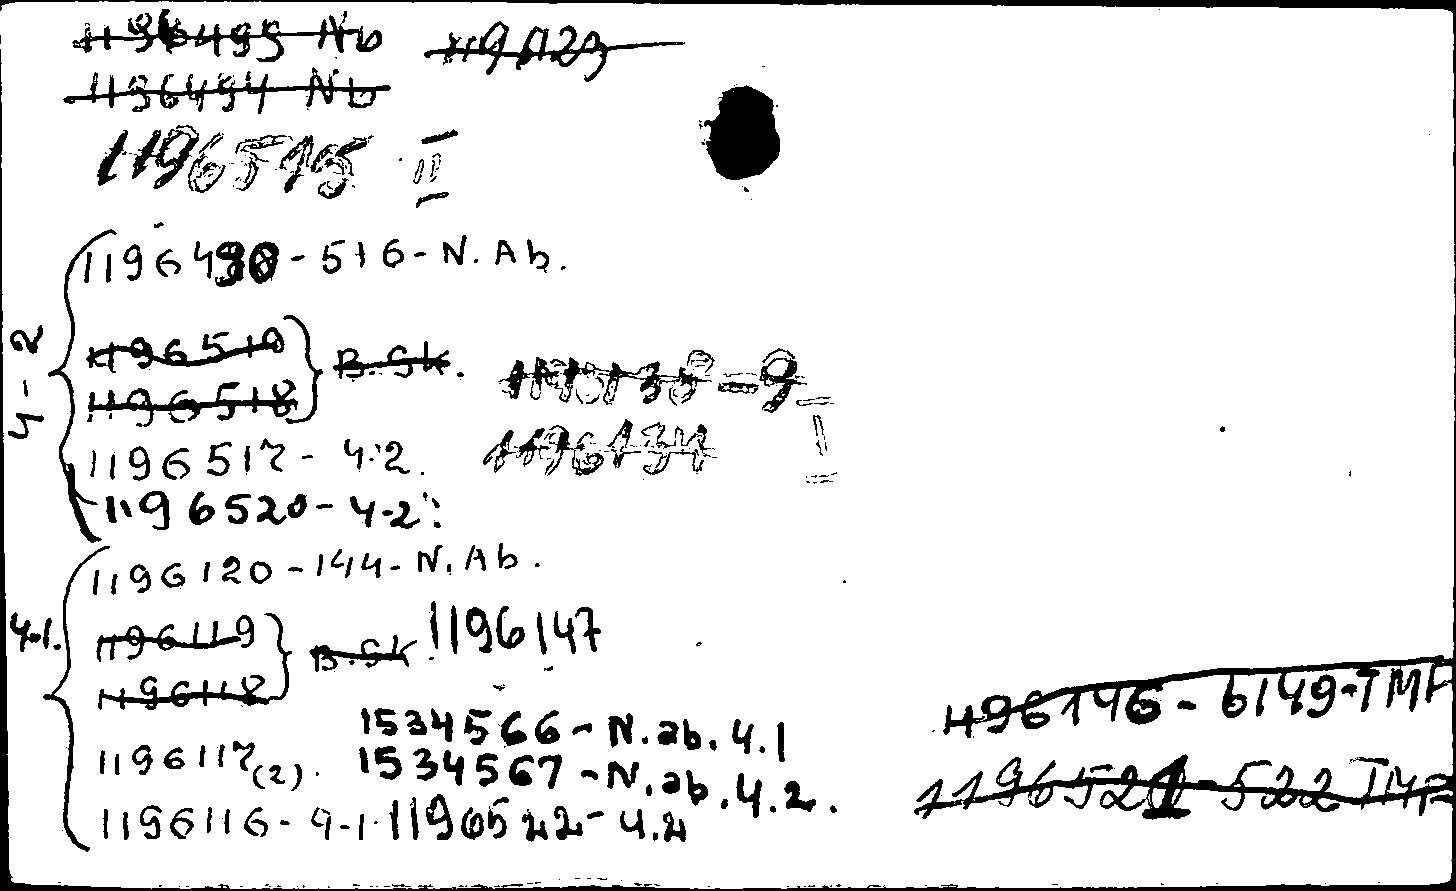 1196495 Nb 1196123
1196494 Nb
1196515 II
1196490-516-N.Ab.
4-2
1196519
1196518
B.Sk.
1196517-4.2.
1196134
I
1196520-4-2.
1196120-144-N.Ab.
4.1.
1196119
1196118
B.Sk.
1196147
1534566-N.ab.4.1
1196117(2).
1534567-N.ab.4.2.
1196116-
1196522-4.2
1196146-6149-TMF
1196521-522 TMF